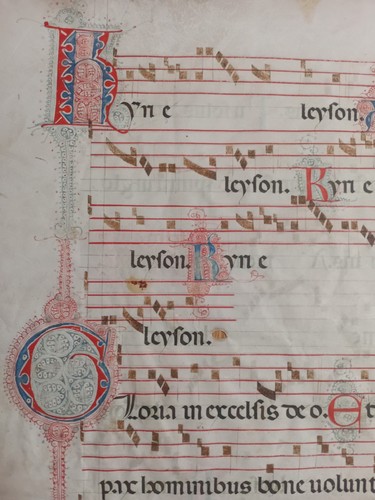 Kyn e leyson.
leyson. Kyn e
leyson. Kyn e
leyson.
Gloria in excelsis de o. Et
pax hominibus bone volunt